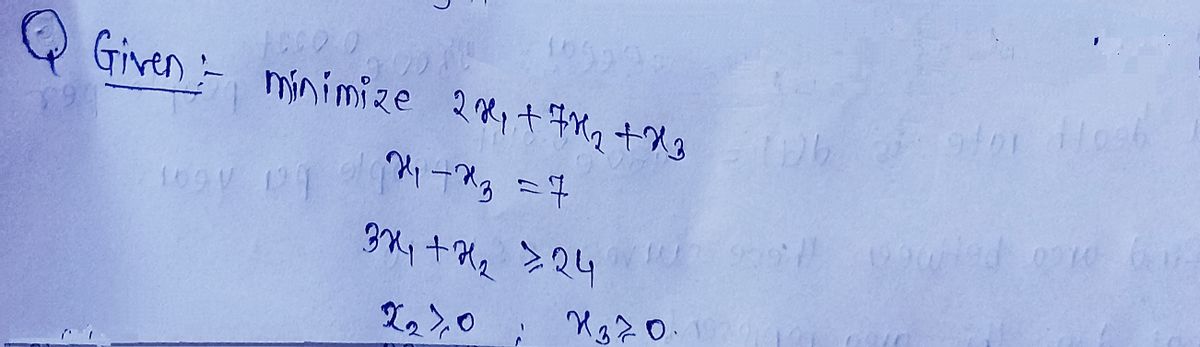 Q Given :- minimize 2x₁ + 7x₂ + x₃
x₁ - x₃ = 7
3x₁ + x₂ ≥ 24
x₂ ≥ 0 ; x₃ ≥ 0.